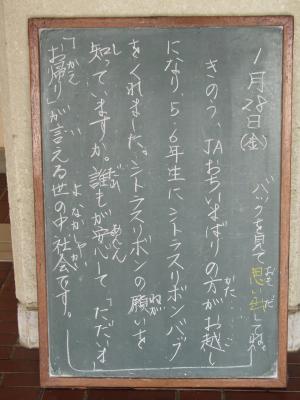 1月28日(金)
バックを見て思い出してね。
きのう、JAおちいまばりの方がお越し
になり、5、6年生にシトラスリボンバッグ
をくれました。シトラスリボンの願いを
知っていますか。誰もが安心して「ただいま」
「お帰り」が言える世の中、社会です。